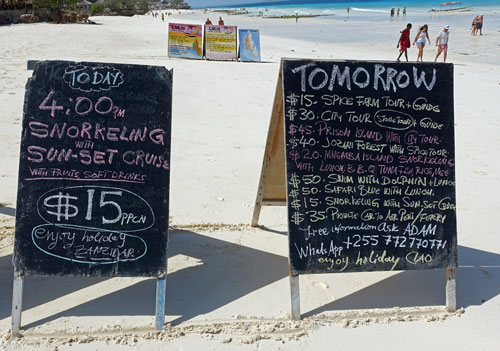 TODAY
4:00PM
SNORKELING
WITH
SUN-SET CRUISE
WITH FRUITS SOFT DRINKS
$15 PPCN
enjoy holiday
ZANZIBAR
TOMORROW
$15. SPICE FARM TOUR + GUIDE
$30. CITY TOUR (STONE TOWN) + GUIDE
$45. PRISON ISLAND WITH CITY TOUR
$40. JOZANI FOREST WITH SPICE TOUR
$20. MNEMBA ISLAND SNORKELING
WITH LUNCH B.B.Q TUNA FISH RICE,
$50. SWIM WITH DOLPHIN + LUNCH
$50. SAFARI BLUE WITH LUNCH.
$15. SNORKELING WITH SUN-SET
$35 PRIVATE CAR TO AIR PORT/FERRY
free information ASK ADAM
WhatsApp +255 772770771
enjoy holiday CIAO